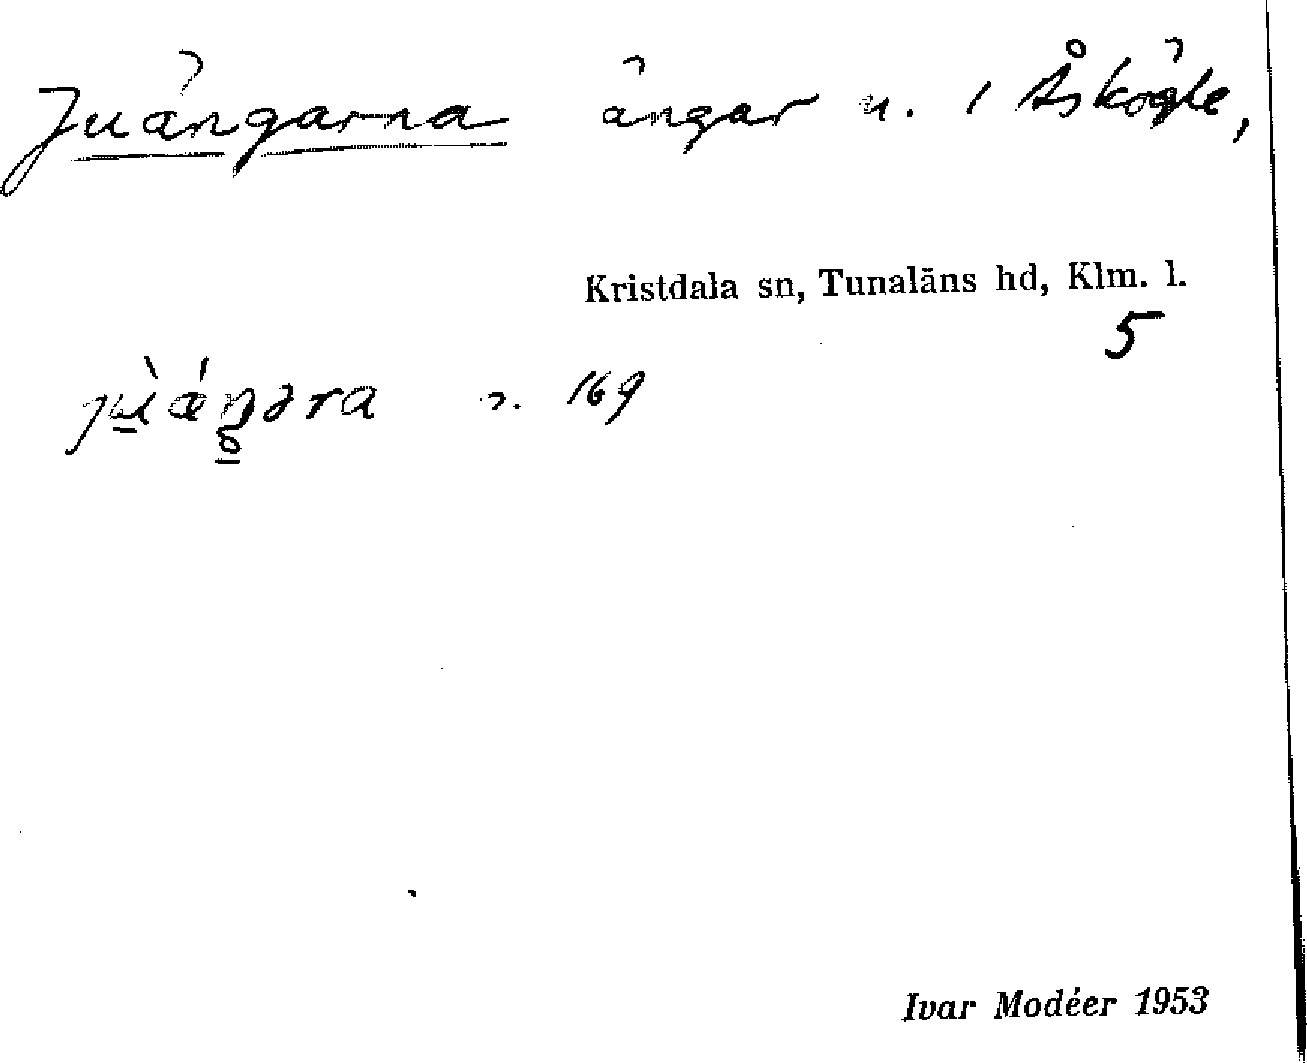 Juängarna ängar n. i Åskögle,
Kristdala sn, Tunaläns hd, Klm. l.
5
s. 169
Ivar Modéer 1953